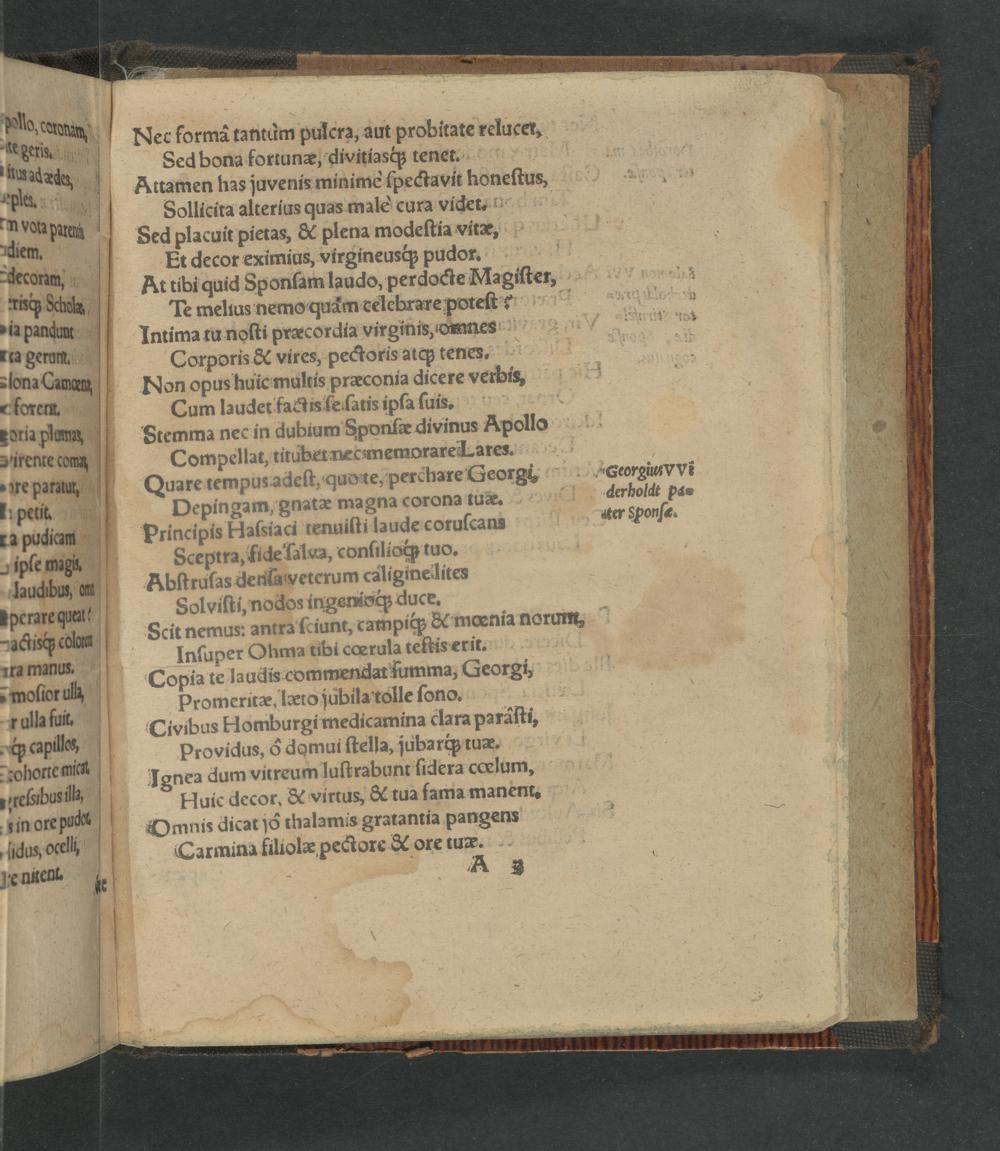 pollo, coronam,
te geris.
itus ad ædes,
eples.
m vota parentis
diem.
decoram,
erisq́; Scholæ,
ia pandunt
rta gerunt.
lona Camœna,
forent.
goria plumas,
virente coma,
are paratur,
petit.
ra pudicam
ipse magis.
laudibus, omn
perare queat?
actisq́; colorem
ura manus.
mosior ulla,
r ulla fuit.
q́; capillos,
cohorte micat.
gressibus illa,
s in ore pudor.
sidus, ocelli,
e nitent.
Nec formâ tantùm pulcra, aut probitate relucet,
Sed bona fortunæ, divitiasq́; tenet.
Attamen has juvenis minimè spectavit honestus,
Sollicita alterius quas malè cura videt.
Sed placuit pietas, & plena modestia vitæ,
Et decor eximius, virgineusq́; pudor.
At tibi quid Sponsam laudo, perdocte Magister,
Te melius nemo quàm celebrare potest?
Intima tu nosti præcordia virginis, omnes
Corporis & vires, pectoris atq; tenes.
Non opus huic multis præconia dicere verbis,
Cum laudet factis se satis ipsa suis.
Stemma nec in dubium Sponsæ divinus Apollo
Compellat, titubet nec memorare Lares.
Quare tempus adest, quo te, perchare Georgi,
Depingam, gnatæ magna corona tuæ.
Georgius VVi
derholdt pa=
ter Sponsæ.
Principis Hassiaci tenuisti laude coruscans
Sceptra, fide salva, consilioq́; tuo.
Abstrusas densa veterum caligine lites
Solvisti, nodos ingenioq́; duce.
Scit nemus: antra sciunt, campiq́; & mœnia norunt,
Insuper Ohma tibi cœrula testis erit.
Copia te laudis commendat summa, Georgi,
Promeritæ, læto jubila tolle sono.
Civibus Homburgi medicamina clara parâsti,
Providus, ô domui stella, jubarq́; tuæ.
Ignea dum vitreum lustrabunt sidera cœlum,
Huic decor, & virtus, & tua fama manent.
Omnis dicat jô thalamis gratantia pangens
Carmina filiolæ pectore & ore tuæ.
A 3